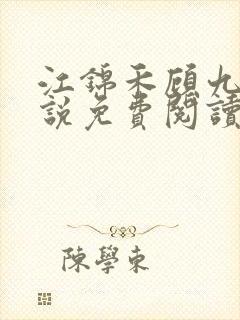 江錦禾顧九
說免費閱讀
陳學東